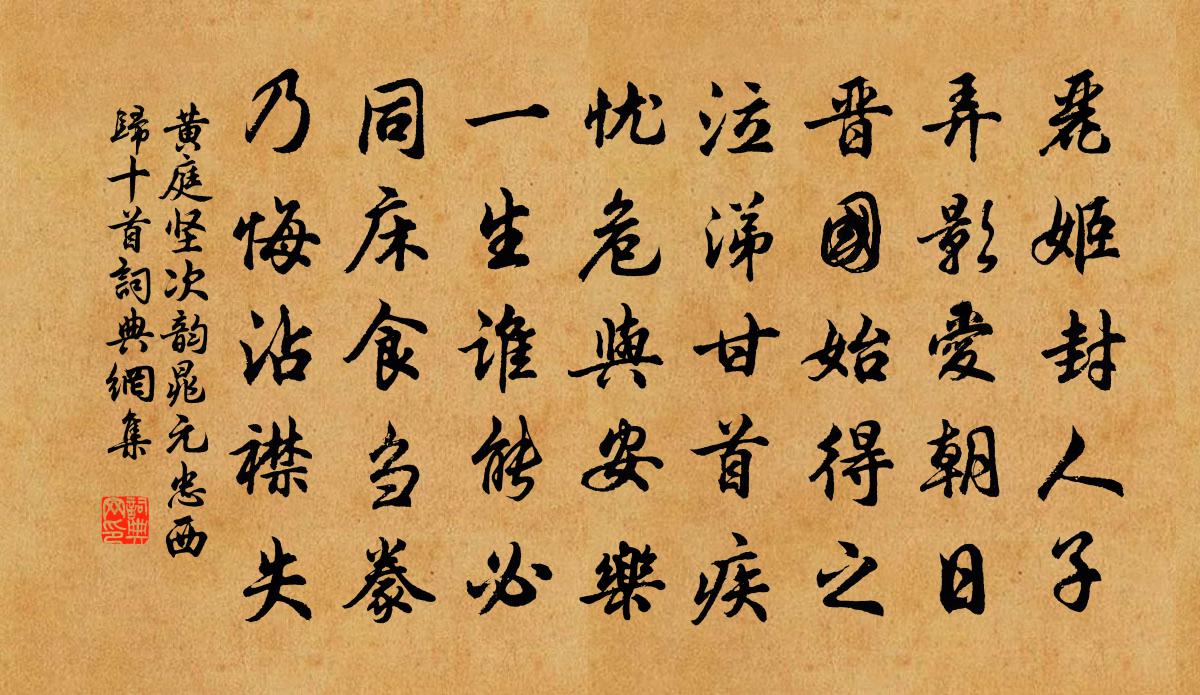 麗姬封人子
弄影愛朝日
晋國始得之
泣涕甘首疾
忧危與安樂
一生誰能必
同床食刍豢
乃悔沾襟失
黄庭坚次韵晁元忠西
歸十首詞典網集
詞典网印